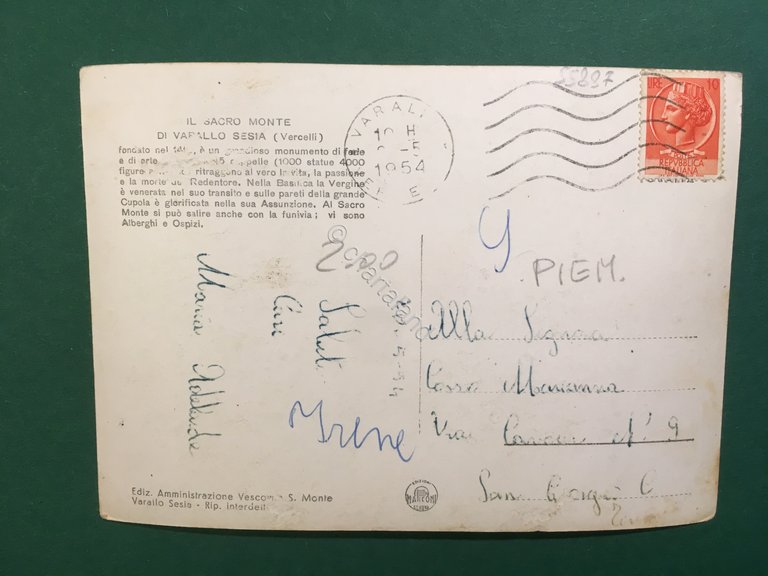 IL SACRO MONTE
DI VARALLO SESIA (Vercelli)
fondato nel è un grandioso monumento di fede
e di arte. (1000 statue 4000
figure ritraggono al vero la vita, la passione
e la morte del Redentore. Nella Basilica la Vergine
è venerata nel suo transito e sulle pareti della grande
Cupola è glorificata nella sua Assunzione. Al Sacro
Monte si può salire anche con la funivia; vi sono
Alberghi e Ospizi.
VARALL
1954
55897
LIRE 10
REPVBBLICA
ITALIANA
9
PIEM.
Cari
Saluti
Maria Adelaide
Irene
Alla Signora
Corso Marianna
Via Cavour N° 9
San Giorgio C
Ediz. Amministrazione Vescov. S. Monte
Varallo Sesia - Rip. interdetta
MARCONI